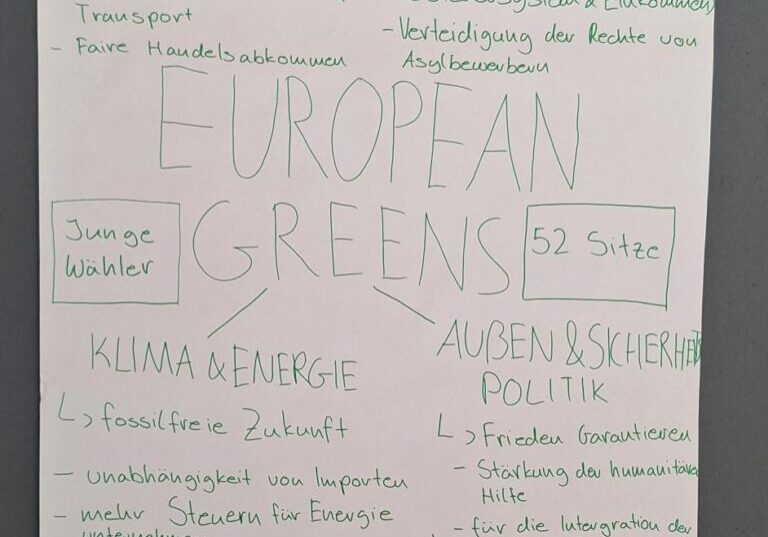 Transport
- Faire Handelsabkommen
& Einkommen)
- Verteidigung der Rechte von
Asylbewerbern
EUROPEAN
GREENS
Junge
Wähler
52 Sitze
KLIMA & ENERGIE
↳ fossilfreie Zukunft
- unabhängigkeit von Importen
- mehr Steuern für Energie
AUßEN & SICHERHEIT
POLITIK
↳ Frieden Garantieren
- Stärkung der humanitäre
Hilte
- für die Intergration der